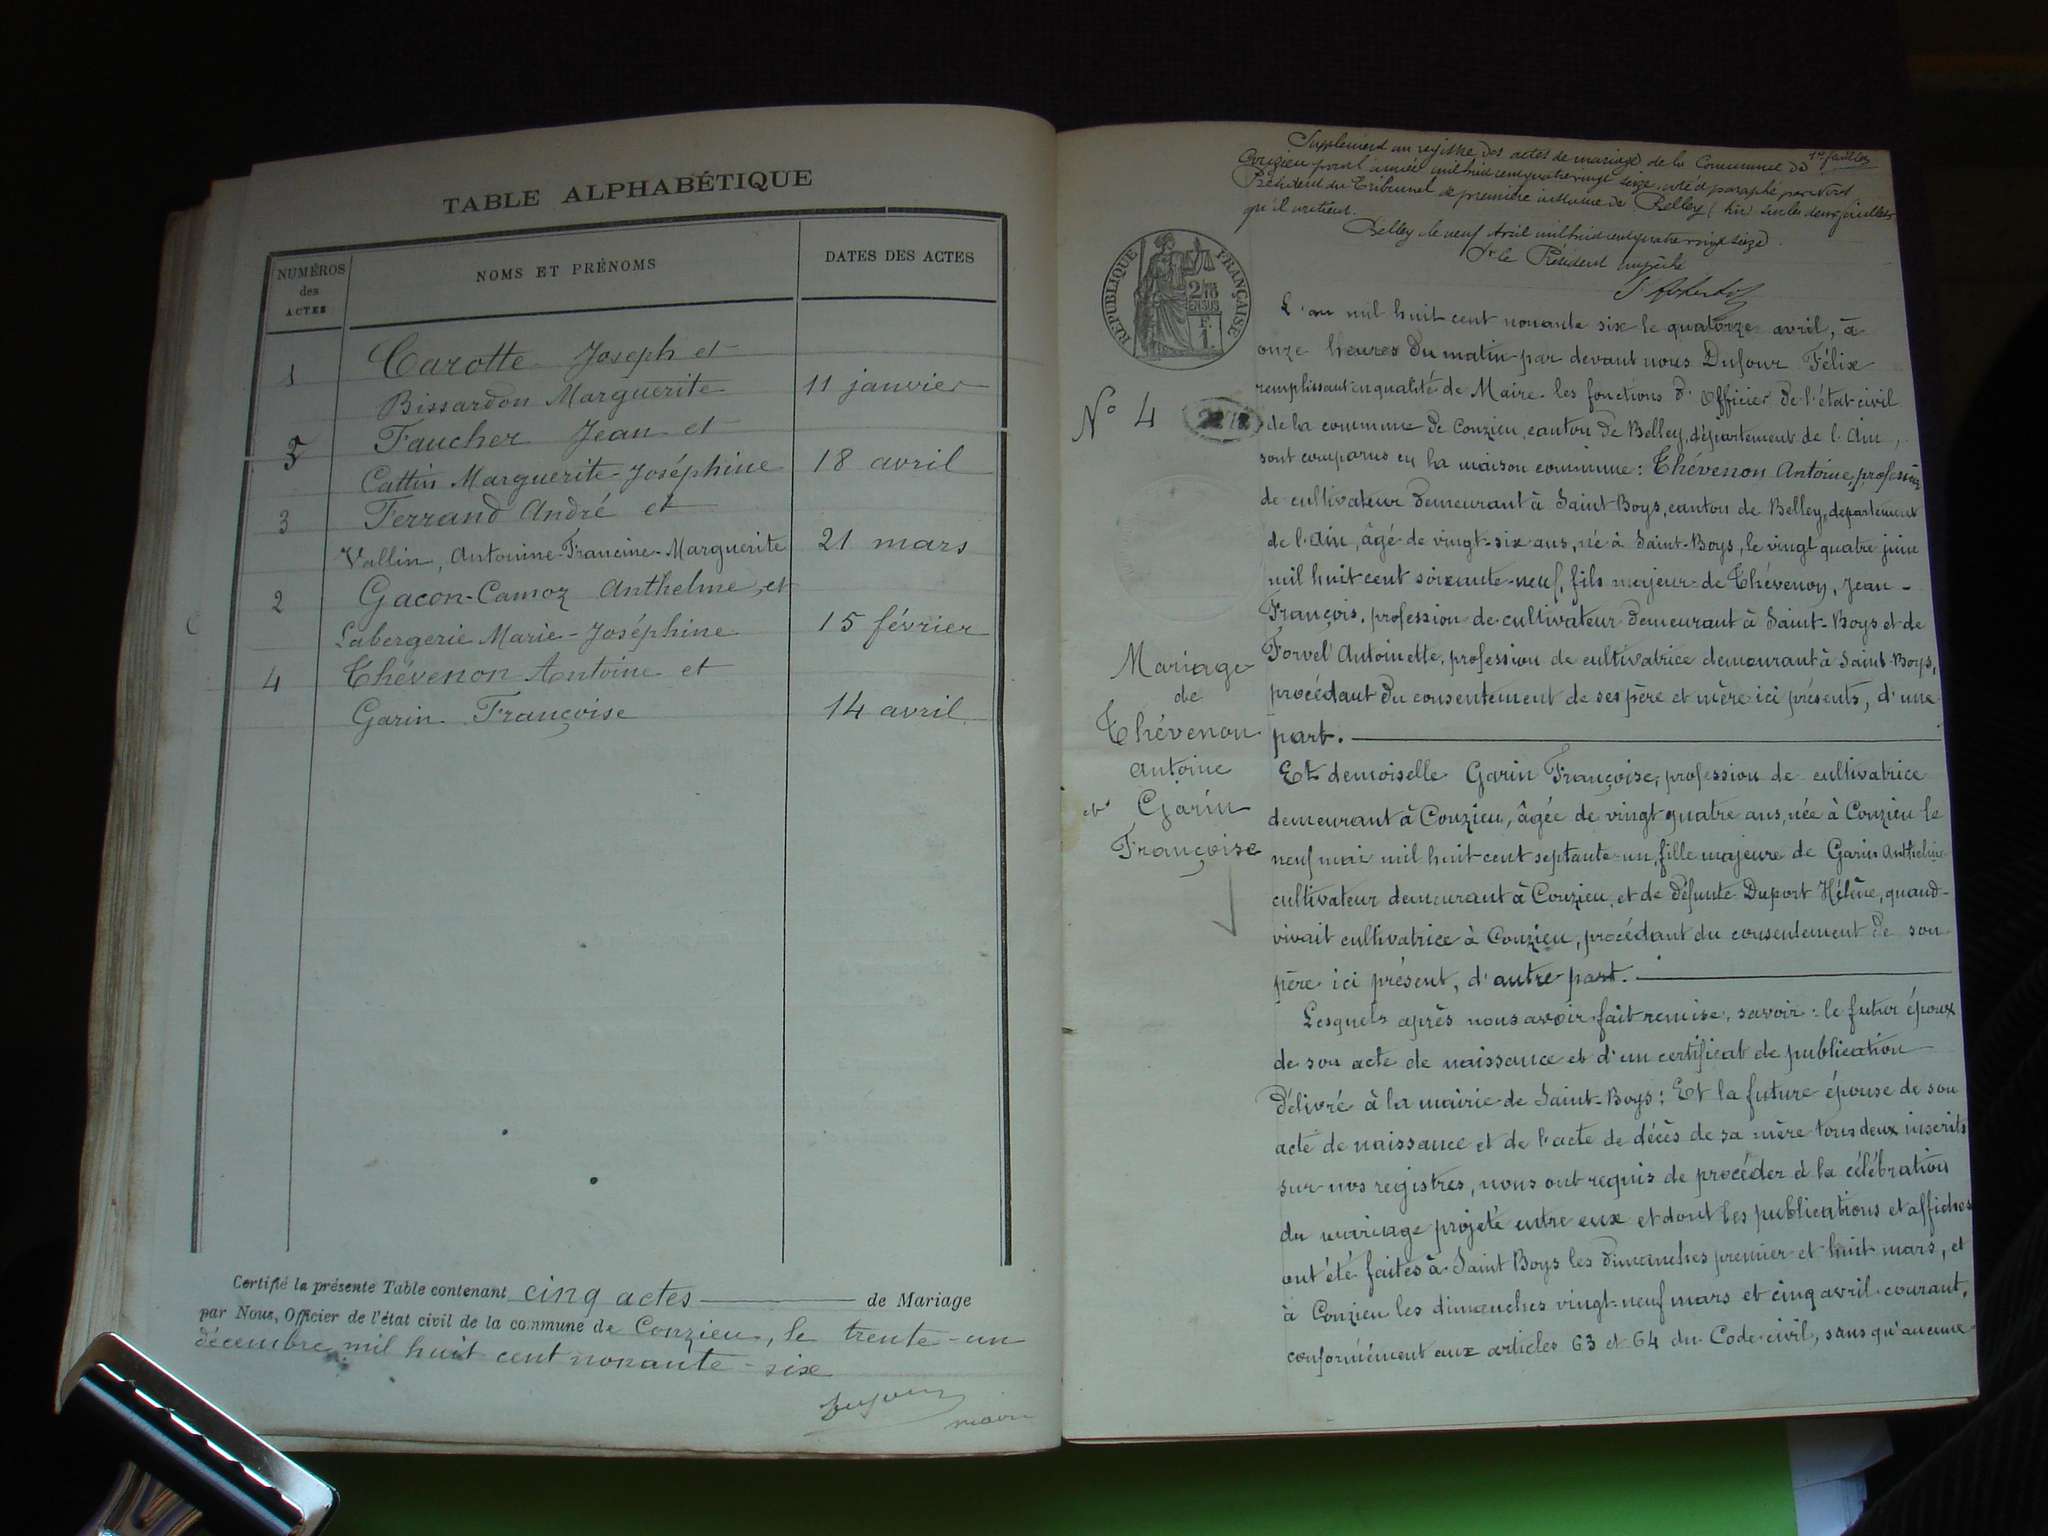 TABLE ALPHABÉTIQUE
NUMÉROS des ACTES
NOMS ET PRÉNOMS
DATES DES ACTES
1 Carotte Joseph et
Bissardon Marguerite 11 janvier
5 Faucher Jean et
Cattin Marguerite-Joséphine 18 avril
3 Ferrand André et
Vallin, Antonine-Francine-Marguerite 21 mars
2 Gacon-Camoz Anthelme, et
Labergerie Marie-Joséphine 15 février
4 Thévenon Antoine et
Garin Françoise 14 avril
Certifié la présente Table contenant cinq actes de Mariage
par Nous, Officier de l'état civil de la commune de Conzieu, le trente-un
décembre mil huit cent nonante-six
Dufour
maire
Supplément au registre des actes de mariage de la Commune de
Conzieu pour l'année mil huit cent quatre vingt seize, coté et paraphé par Nous
Président du Tribunal de première instance de Belley (Ain) sur les deux feuilles
qu'il contient.
Belley le neuf Avril mil huit cent quatre vingt seize
Pr le Président empêché
RÉPUBLIQUE FRANÇAISE
N° 4
Mariage
de
Thévenon
Antoine
et Garin
Françoise
L'an mil huit cent nonante six le quatorze avril, à
onze heures du matin par devant nous Dufour Félix
remplissant en qualité de Maire les fonctions d'Officier de l'état civil
de la commune de Conzieu, canton de Belley, département de l'Ain,
sont comparus en la maison commune: Thévenon Antoine, profession
de cultivateur demeurant à Saint-Boys, canton de Belley, département
de l'Ain, âgé de vingt-six ans, né à Saint-Boys, le vingt quatre juin
mil huit cent soixante-neuf, fils majeur de Thévenon, Jean-
François, profession de cultivateur demeurant à Saint-Boys et de
Forvel Antoinette, profession de cultivatrice demeurant à Saint-Boys,
procédant du consentement de ses père et mère ici présents, d'une
part.
Et demoiselle Garin Françoise, profession de cultivatrice
demeurant à Conzieu, âgée de vingt quatre ans, née à Conzieu le
neuf mai mil huit cent septante-un, fille majeure de Garin Anthelme
cultivateur demeurant à Conzieu, et de défunte Duport Hélène, quand-
vivait cultivatrice à Conzieu, procédant du consentement de son
père ici présent, d'autre part.
Lesquels après nous avoir fait remise, savoir: le futur époux
de son acte de naissance et d'un certificat de publication
délivré à la mairie de Saint-Boys; Et la future épouse de son
acte de naissance et de l'acte de décès de sa mère tous deux inscrits
sur nos registres, nous ont requis de procéder à la célébration
du mariage projeté entre eux et dont les publications et affiches
ont été faites à Saint Boys les dimanches premier et huit mars, et
à Conzieu les dimanches vingt-neuf mars et cinq avril courant,
conformément aux articles 63 et 64 du Code civil, sans qu'aucune